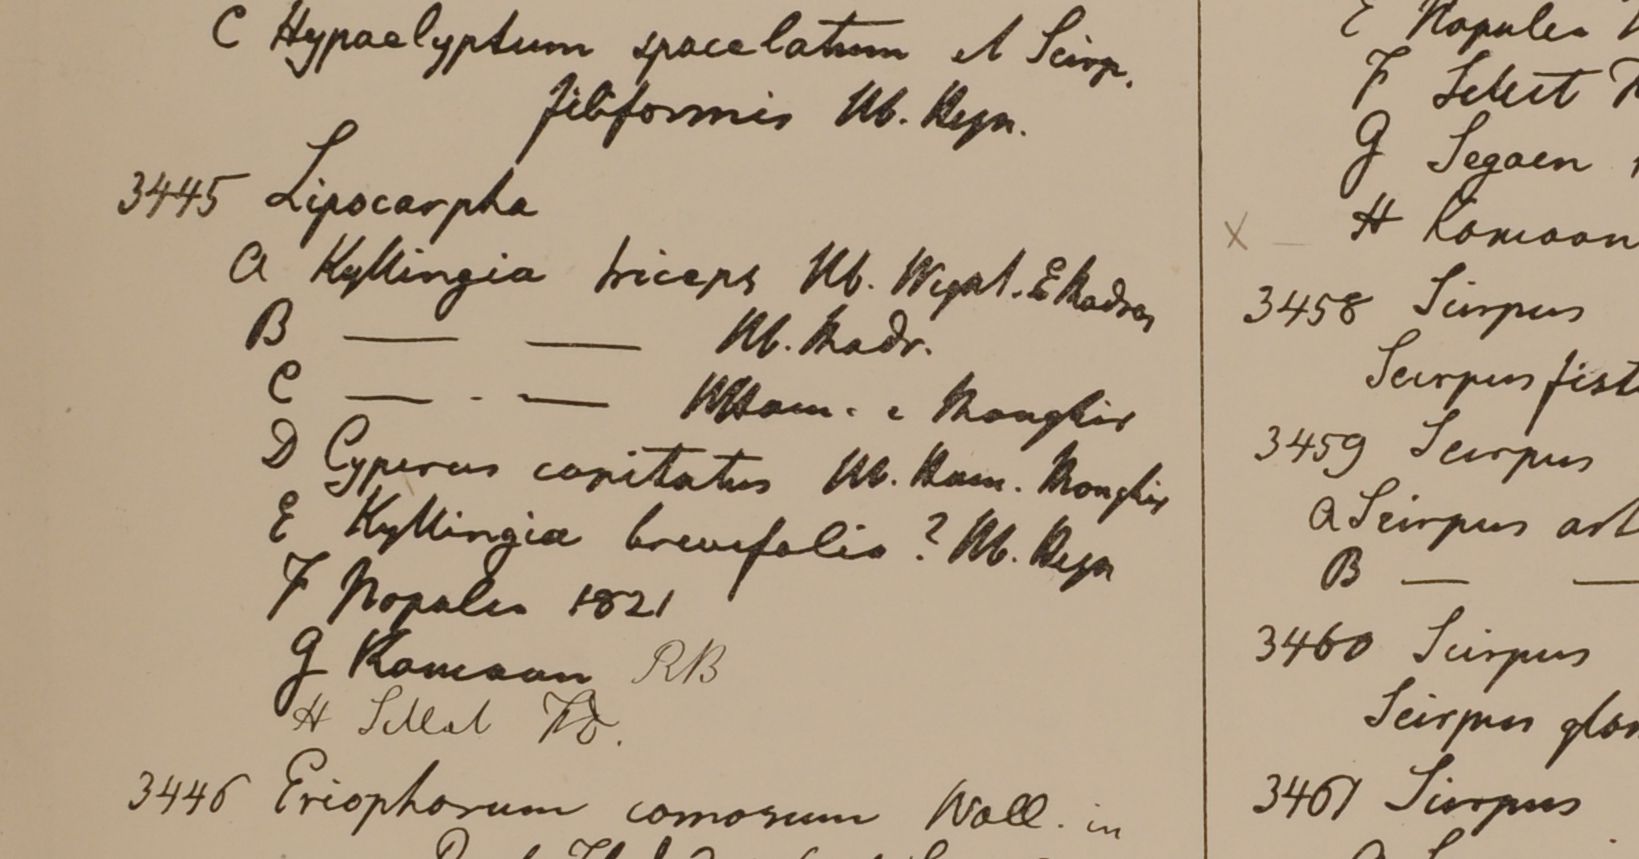 C Hypaelyptum spacelatum et Scirp.
filiformis Hb. Heyn.
3445 Lipocarpha
a Kyllingia triceps Hb. Wight. E Madras
B — — Hb. Madr.
C — . — HHam. e Monghir
D Cyperus capitatus Hb. Ham. Monghir
E Kyllingia brevifolia ? Hb. Heyn
F Napalia 1821
G Kamaon RB
H Sillet FD.
3446 Eriophorum comosum Wall. in
E Napalia
F Sillet
G Segaen
X H Kamaon
3458 Scirpus
Scirpus fist
3459 Scirpus
a Scirpus art
B — —
3460 Scirpus
Scirpus glom
3461 Scirpus